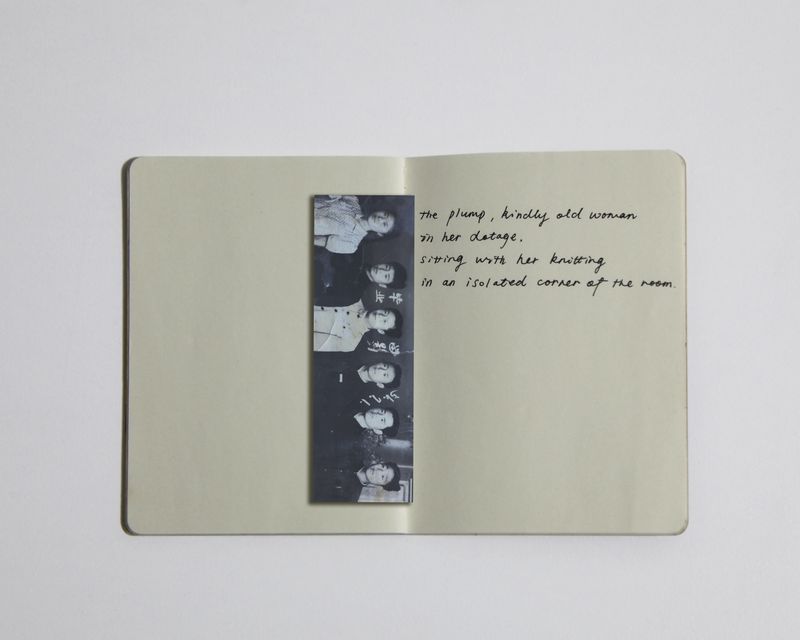 the plump, kindly old woman
in her dotage.
sitting with her knitting
in an isolated corner of the room.
毕业
留影